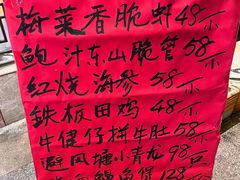 梅菜香脆虾48元
鲍汁东山脆管58元
红烧海参58元
鉄板田鸡48元
牛健仔拼牛肚58元
避风塘小青龙98只
鳗鱼煲128